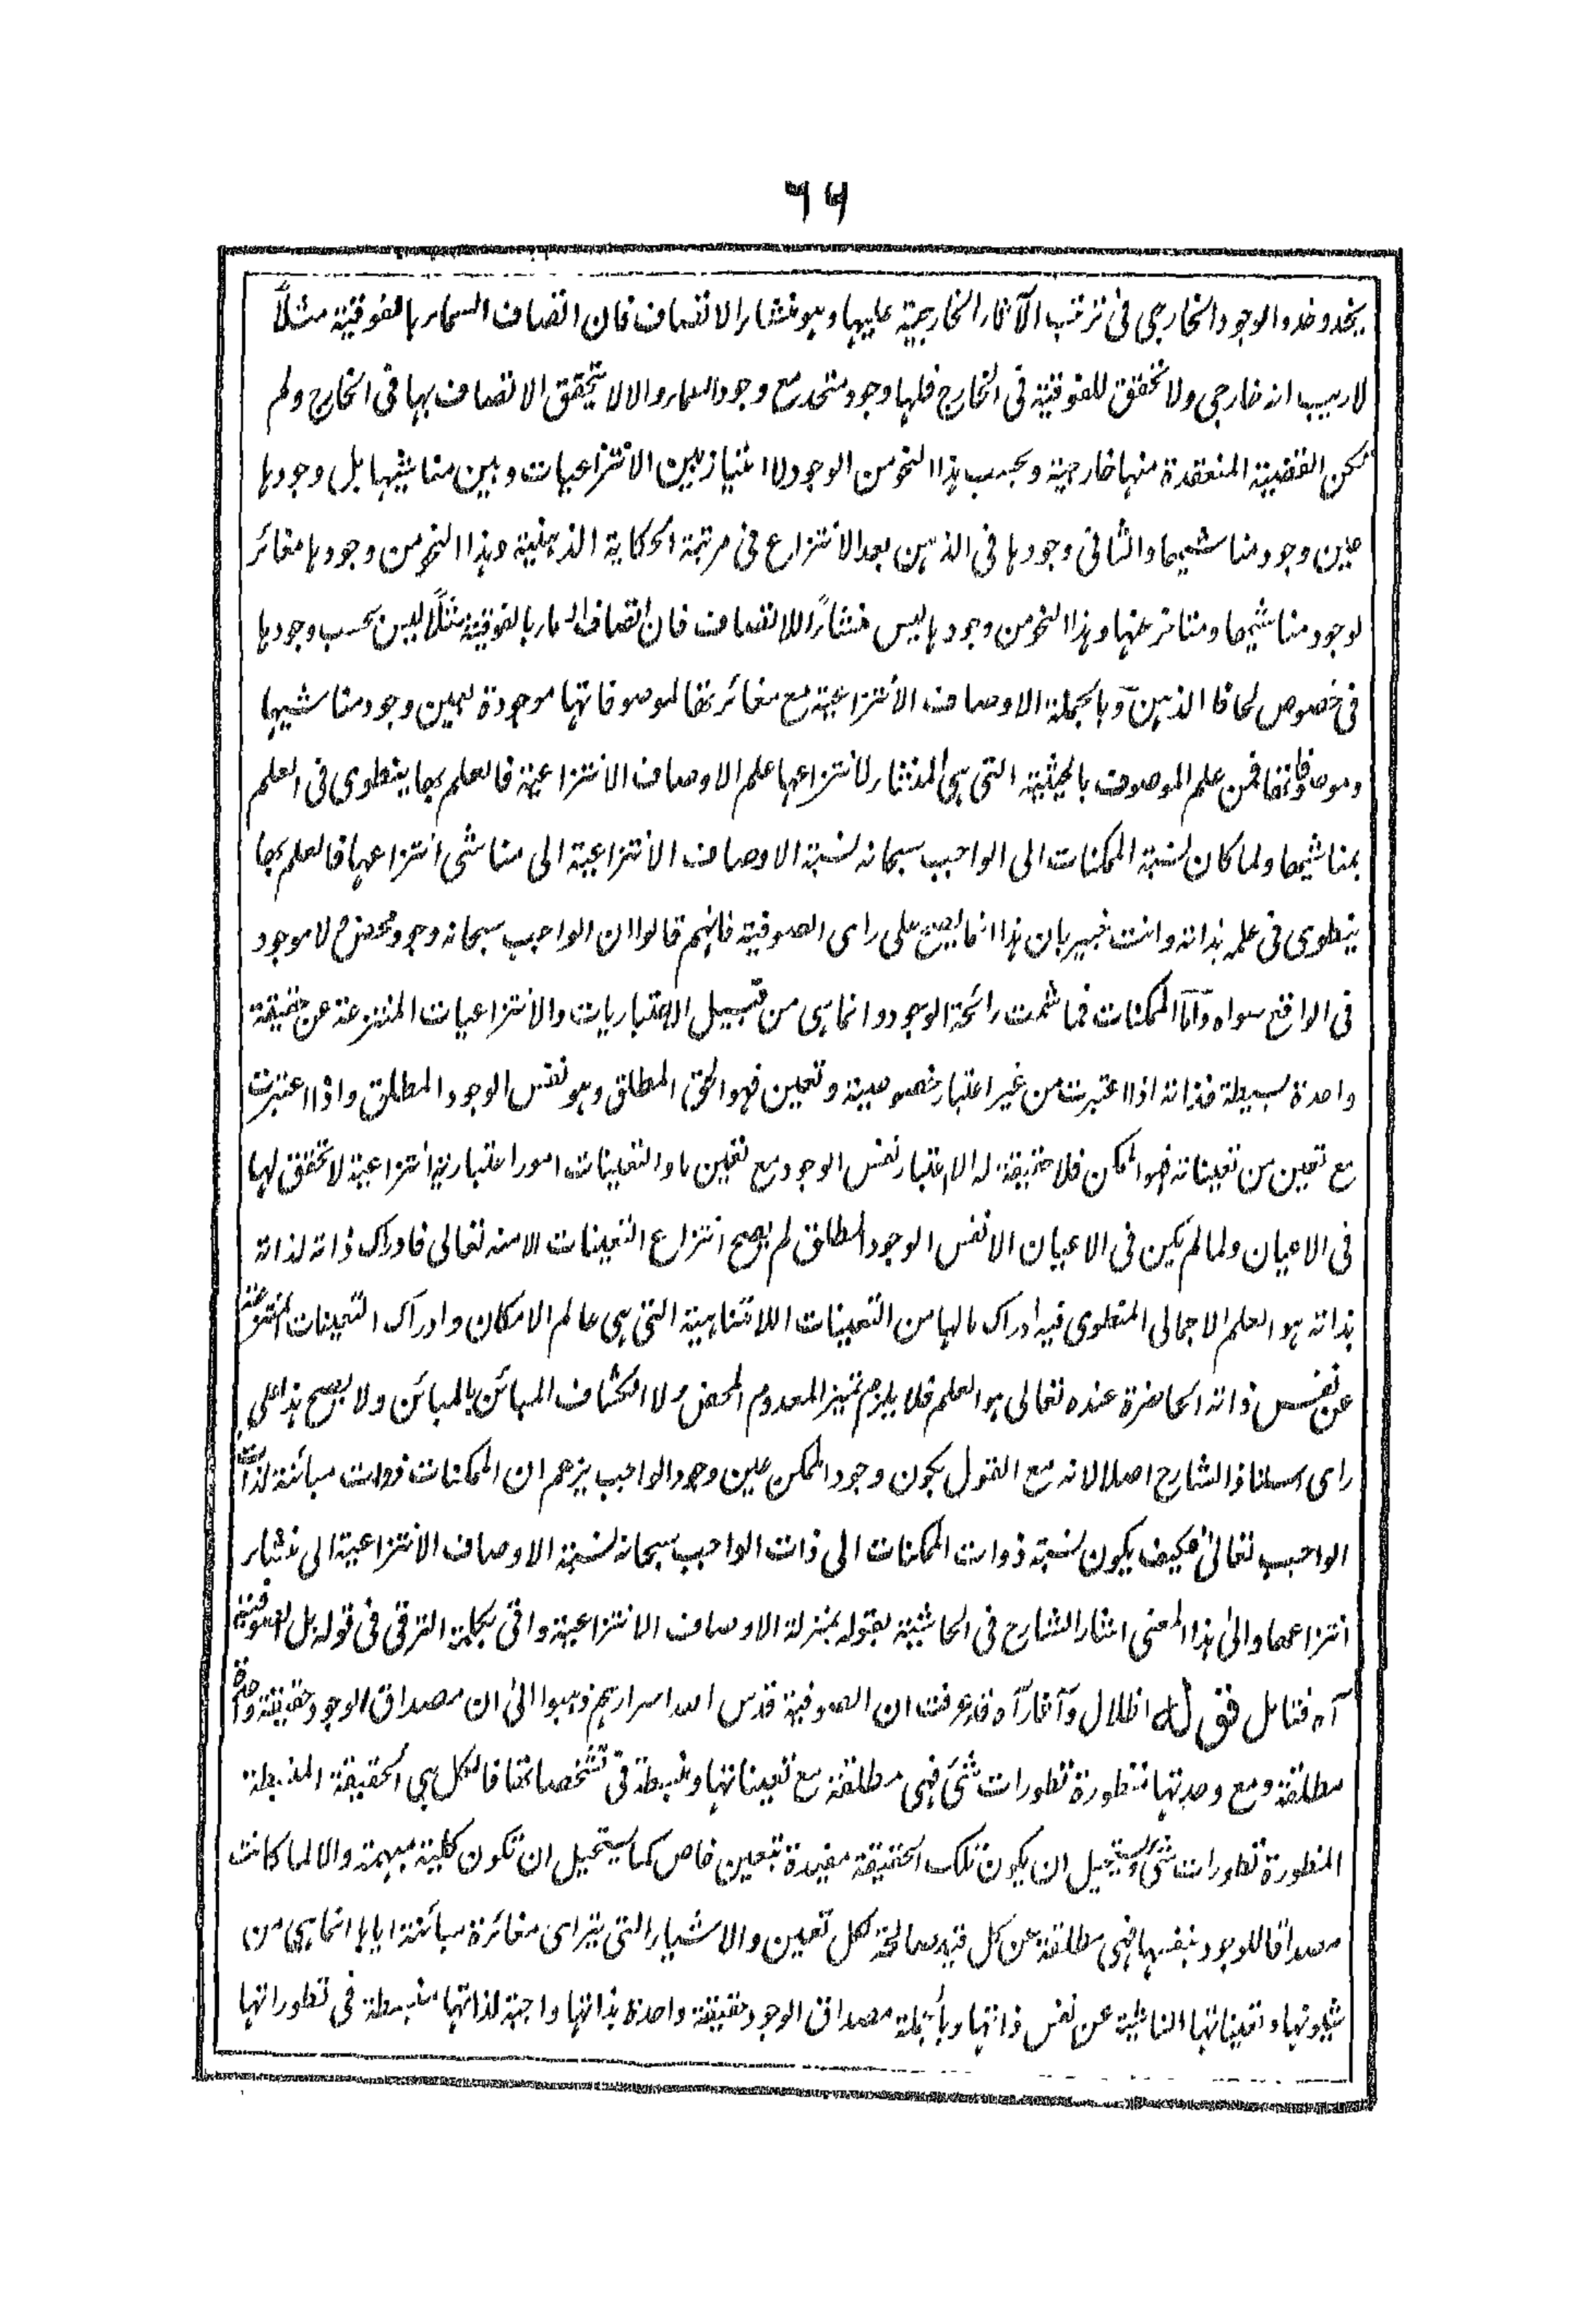 ٦٦
يحذو حذو الوجود الخارجي في ترتب الآثار الخارجية عليها وهو منشاء الاتصاف فان اتصاف السماء بالفوقية مثلاً
لا ريب انه خارجي ولا تحقق للفوقية في الخارج فلها وجود متحد مع وجود السماء والا لا يتحقق الاتصاف بها في الخارج ولم
تكن القضية المنعقدة منها خارجية وبحسب هذا النحو من الوجود لا امتياز بين الانتزاعيات وبين مناشيها بل وجودها
عين وجود مناشيها والثاني وجودها في الذهن بعد الانتزاع في مرتبة الحكاية الذهنية وهذا النحو من وجودها مغائر
لوجود مناشيها ومتاخر عنها وهذا النحو من وجودها ليس منشاءً للاتصاف فان اتصاف السماء بالفوقية مثلاً ليس بحسب وجودها
في خصوص لحاظ الذهن وبالجملة الاوصاف الانتزاعية مع مغائرتها لموصوفاتها موجودة بعين وجود مناشيها
وموصوفاتها فمن علم الموصوف بالحيثية التي هي المنشاء لانتزاعها علم الاوصاف الانتزاعية فالعلم بها ينطوى في العلم
بمناشيها ولما كان نسبة الممكنات الى الواجب سبحانه نسبة الاوصاف الانتزاعية الى مناشى انتزاعها فالعلم بها
ينطوى في علمه بذاته وانت خبير بان هذا انما يصح على راى الصوفية فانهم قالوا ان الواجب سبحانه وجود محض لا موجود
في الواقع سواه واما الممكنات فما شمت رائحة الوجود وانما هي من قبيل الاعتباريات والانتزاعيات المنتزعة عن حقيقة
واحدة بسيطة فذاته اذا اعتبرت من غير اعتبار خصوصية وتعين فهو الحق المطلق وهو نفس الوجود المطلق واذا اعتبرت
مع تعين من تعيناته فهو الممكن فلا حقيقة له الا اعتبار نفس الوجود مع تعين ما والتعينات امور اعتبارية انتزاعية لا تحقق لها
في الاعيان ولما لم يكن في الاعيان الا نفس الوجود المطلق لم يصح انتزاع التعينات الا منه تعالى فادراك ذاته لذاته
بذاته هو العلم الاجمالى المنطوى فيه ادراك ما لها من التعينات اللامتناهية التي هي عالم الامكان وادراك التعينات المنتزعة
عن نفس ذاته الحاضرة عنده تعالى هو العلم فلا يلزم تميز المعدوم المحض ولا انكشاف المبائن بالمبائن ولا يصح هذا على
راى استاذ الشارح اصلا لانه مع القول بكون وجود الممكن عين وجود الواجب يزعم ان الممكنات ذوات مبائنة لذات
الواجب تعالى فكيف يكون نسبة ذوات الممكنات الى ذات الواجب سبحانه نسبة الاوصاف الانتزاعية الى منشاء
انتزاعها والى هذا المعنى اشار الشارح في الحاشية بقوله بمنزلة الاوصاف الانتزاعية واتى بكلمة الترقي في قوله بل الصوفية
آه فتامل قوله اظلال وآثار آه قد عرفت ان الصوفية قدس الله اسرارهم ذهبوا الى ان مصداق الوجود حقيقة واحدة
مطلقة ومع وحدتها متطورة تطورات شتى فهي مطلقة مع تعيناتها ومنبسطة في تشخصاتها فالكل هي الحقيقة المنبسطة
المتطورة تطورات شتى ويستحيل ان يكون تلك الحقيقة مقيدة بتعين خاص كما يستحيل ان تكون كلية مبهمة والا لما كانت
مصداقا للوجود بنفسها فهي مطلقة عن كل قيد صالحة لكل تعين والاشياء التي يتراى مغائرة مبائنة اياها انما هي من
شيونها وتعيناتها الناشية عن نفس ذاتها وبالجملة مصداق الوجود حقيقة واحدة بذاتها واجبة لذاتها منبسطة في تطوراتها